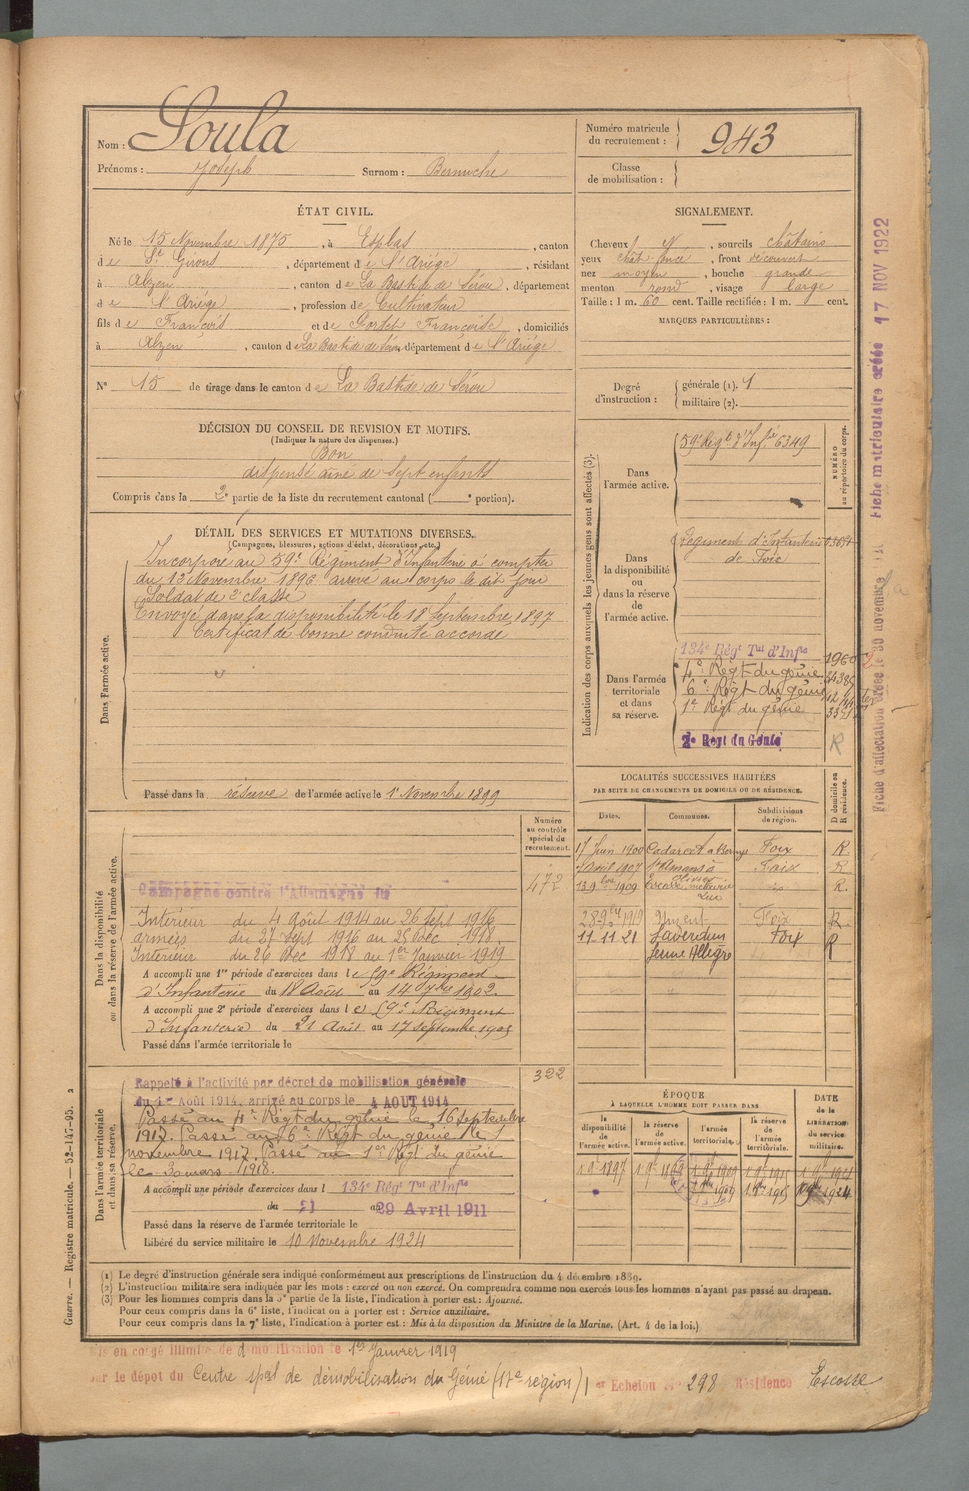 Nom : Soula
Prénoms : Joseph Surnom : Bernuche
Numéro matricule du recrutement : 943
Classe de mobilisation :
ÉTAT CIVIL.
Né le 15 Novembre 1875, à Esplas, canton
de St Girons, département de l'Ariége, résidant
à Alzen, canton de La Bastide de Sérou, département
de l'Ariége, profession de Cultivateur
fils de François et de Gortet Françoise, domiciliés
à Alzen, canton de La Bastide de Sérou, département de l'Ariége
N° 15 de tirage dans le canton de La Bastide de Sérou
SIGNALEMENT.
Cheveux N, sourcils châtains
yeux chât foncé, front découvert
nez moyen, bouche grande
menton rond, visage large
Taille : 1 m. 60 cent. Taille rectifiée : 1 m. cent.
MARQUES PARTICULIÈRES :
Degré d'instruction : générale (1). 1
militaire (2).
DÉCISION DU CONSEIL DE REVISION ET MOTIFS.
(Indiquer la nature des dispenses.)
Bon
dispensé aîné de sept enfants
Compris dans la 2e partie de la liste du recrutement cantonal ( e portion).
DÉTAIL DES SERVICES ET MUTATIONS DIVERSES.
(Campagnes, blessures, actions d'éclat, décorations, etc.)
Dans l'armée active.
Incorporé au 59e Régiment d'Infanterie à compter
du 13 Novembre 1896 arrivé au corps le dit jour
Soldat de 2e classe
Envoyé dans la disponibilité le 18 Septembre 1897
Certificat de bonne conduite accordé
Passé dans la réserve de l'armée active le 1er Novembre 1899
Indication des corps auxquels les jeunes gens sont affectés (3).
NUMÉRO au répertoire du corps.
Dans l'armée active.
59e Régt d'Infie 6349
Dans la disponibilité ou dans la réserve de l'armée active.
Régiment d'Infanterie
de Foix
Dans l'armée territoriale et dans sa réserve.
134e Régt Tal d'Infie
4e Régt du génie
6e Régt du génie
1er Régt du génie
2e Regt du Génie
R
LOCALITÉS SUCCESSIVES HABITÉES
PAR SUITE DE CHANGEMENTS DE DOMICILE OU DE RÉSIDENCE.
Dates. Communes. Subdivisions de région. D domicile ou R résidence.
17 Juin 1900 Cadarcet Foix R
Avril 1907 St Amans Foix R
1909 Escosse R.
28 9bre 1919 Foix R
11-11-21 Saverdun Foix R
ferme Allégre
Dans la disponibilité ou dans la réserve de l'armée active.
Numéro au contrôle spécial du recrutement.
472
Campagne contre l'Allemagne
Intérieur du 4 Août 1914 au 26 Sept 1916
armées du 27 Sept 1916 au 25 Dec 1918
Intérieur du 26 Dec 1918 au 1er Janvier 1919
A accompli une 1re période d'exercices dans le 59e Régiment
d'Infanterie du 18 Août au 14 7bre 1902.
A accompli une 2e période d'exercices dans le 59e Régiment
d'Infanterie du 21 Août au 17 septembre 1905
Passé dans l'armée territoriale le
Dans l'armée territoriale et dans sa réserve.
322
Rappelé à l'activité par décret de mobilisation générale
du 1er Août 1914, arrivé au corps le 4 AOUT 1914
Passé au 4e Régt du génie le 16 septembre
1917. Passé au 6e Régt du génie le 1
novembre 1917. Passé au 1er Régt du génie
le 30 mars 1918.
A accompli une période d'exercices dans l 134e Régt Tal d'Infie
du 21 au 29 Avril 1911
Passé dans la réserve de l'armée territoriale le
Libéré du service militaire le 10 Novembre 1924
ÉPOQUE
À LAQUELLE L'HOMME DOIT PASSER DANS
la disponibilité de l'armée active. la réserve de l'armée active. l'armée territoriale. la réserve de l'armée territoriale. DATE de la LIBÉRATION du service militaire.
(1) Le degré d'instruction générale sera indiqué conformément aux prescriptions de l'instruction du 4 décembre 1889.
(2) L'instruction militaire sera indiquée par les mots : exercé ou non exercé. On comprendra comme non exercés tous les hommes n'ayant pas passé au drapeau.
(3) Pour les hommes compris dans la 5e partie de la liste, l'indication à porter est : Ajourné.
Pour ceux compris dans la 6e liste, l'indication à porter est : Service auxiliaire.
Pour ceux compris dans la 7e liste, l'indication à porter est : Mis à la disposition du Ministre de la Marine. (Art. 4 de la loi.)
Mis en congé illimité de démobilisation le 1er Janvier 1919
par le dépot du Centre spal de démobilisation du Génie (17e région) 1er Echelon N° 298 Résidence Escosse
Guerre. — Registre matricule. — 52-147-95.
Fiche matriculaire créée 17 NOV 1922
Fiche d'affectation créée le 30 novembre